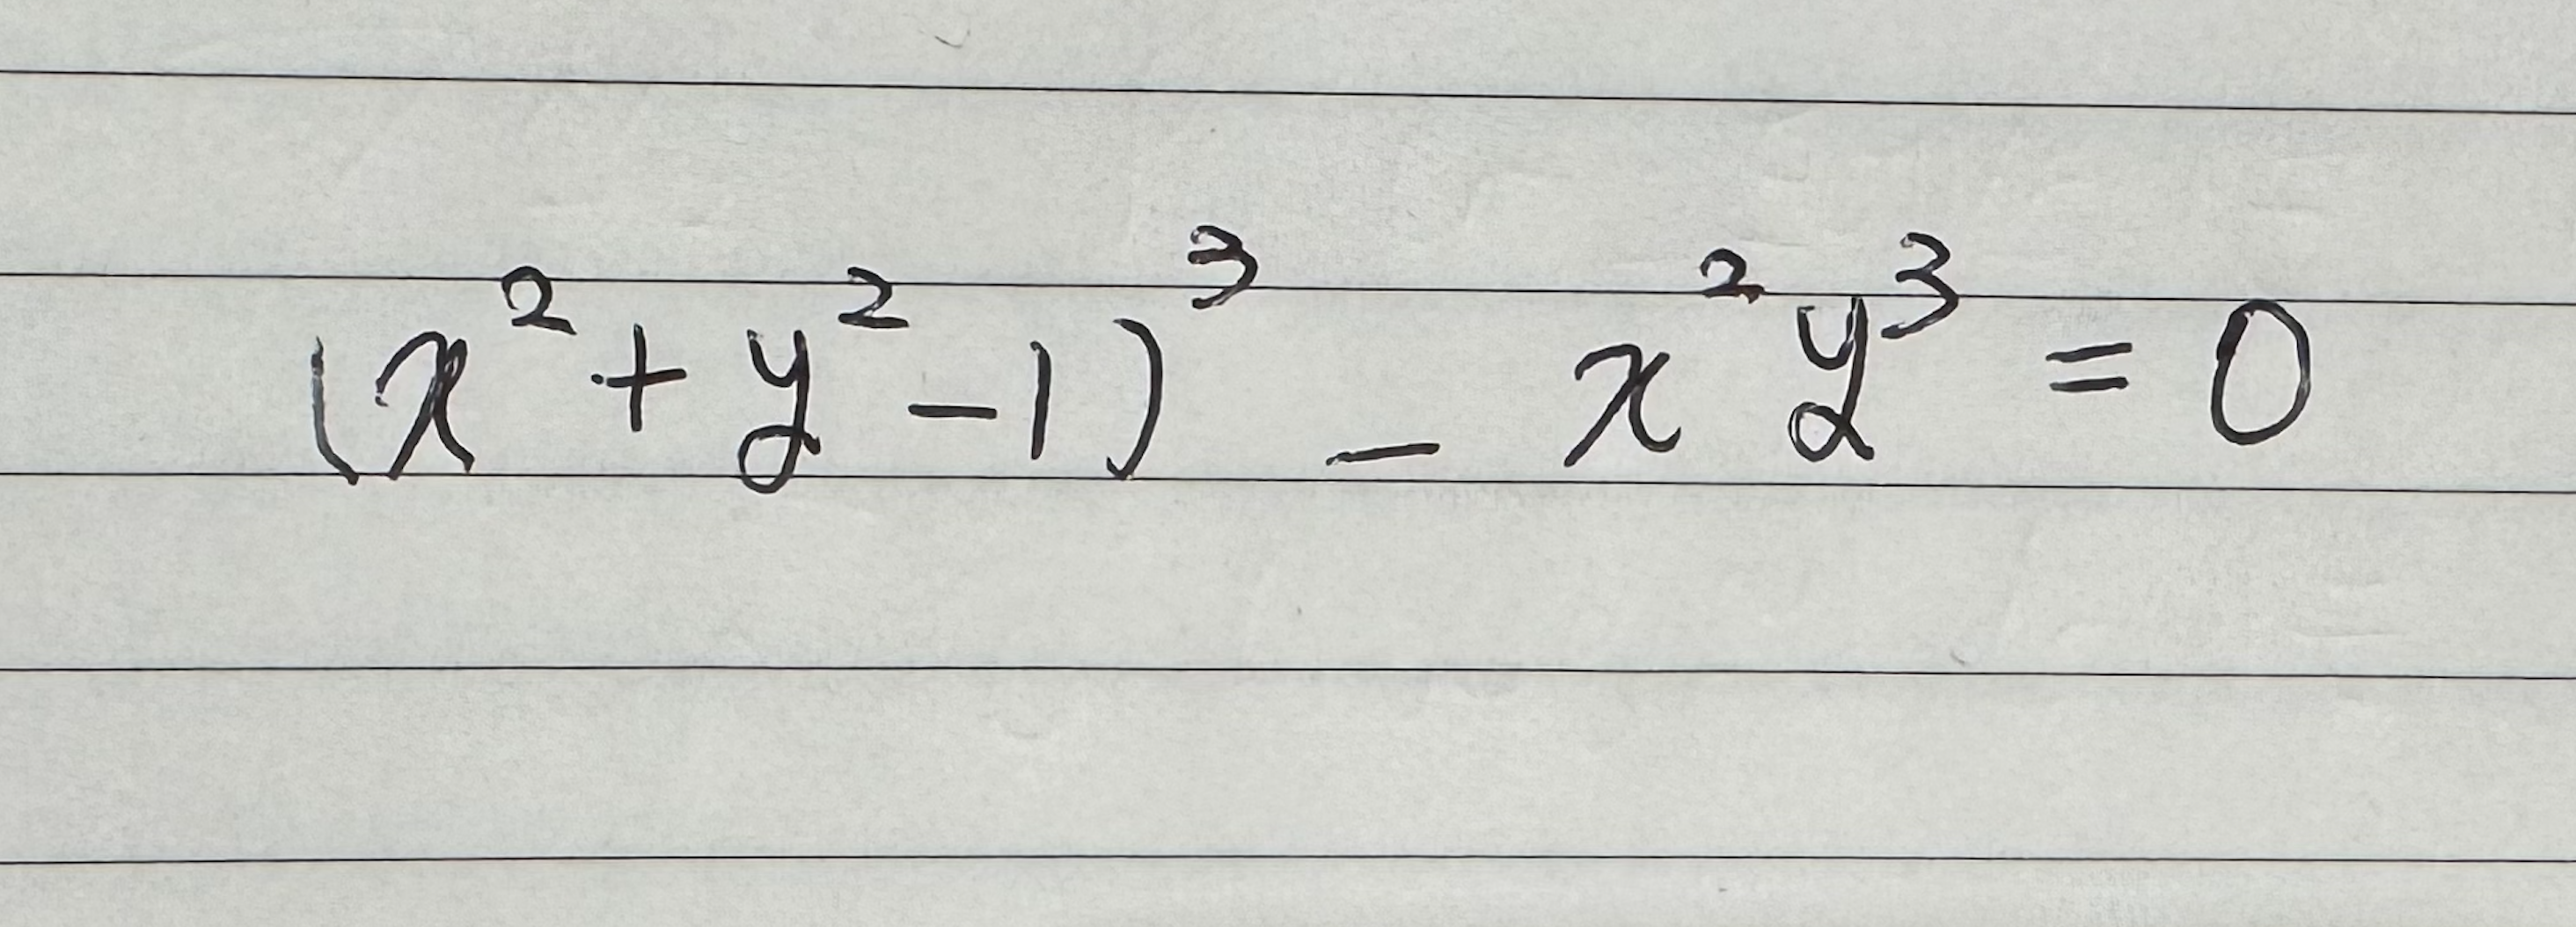 (x² + y² - 1)³ - x² y³ = 0